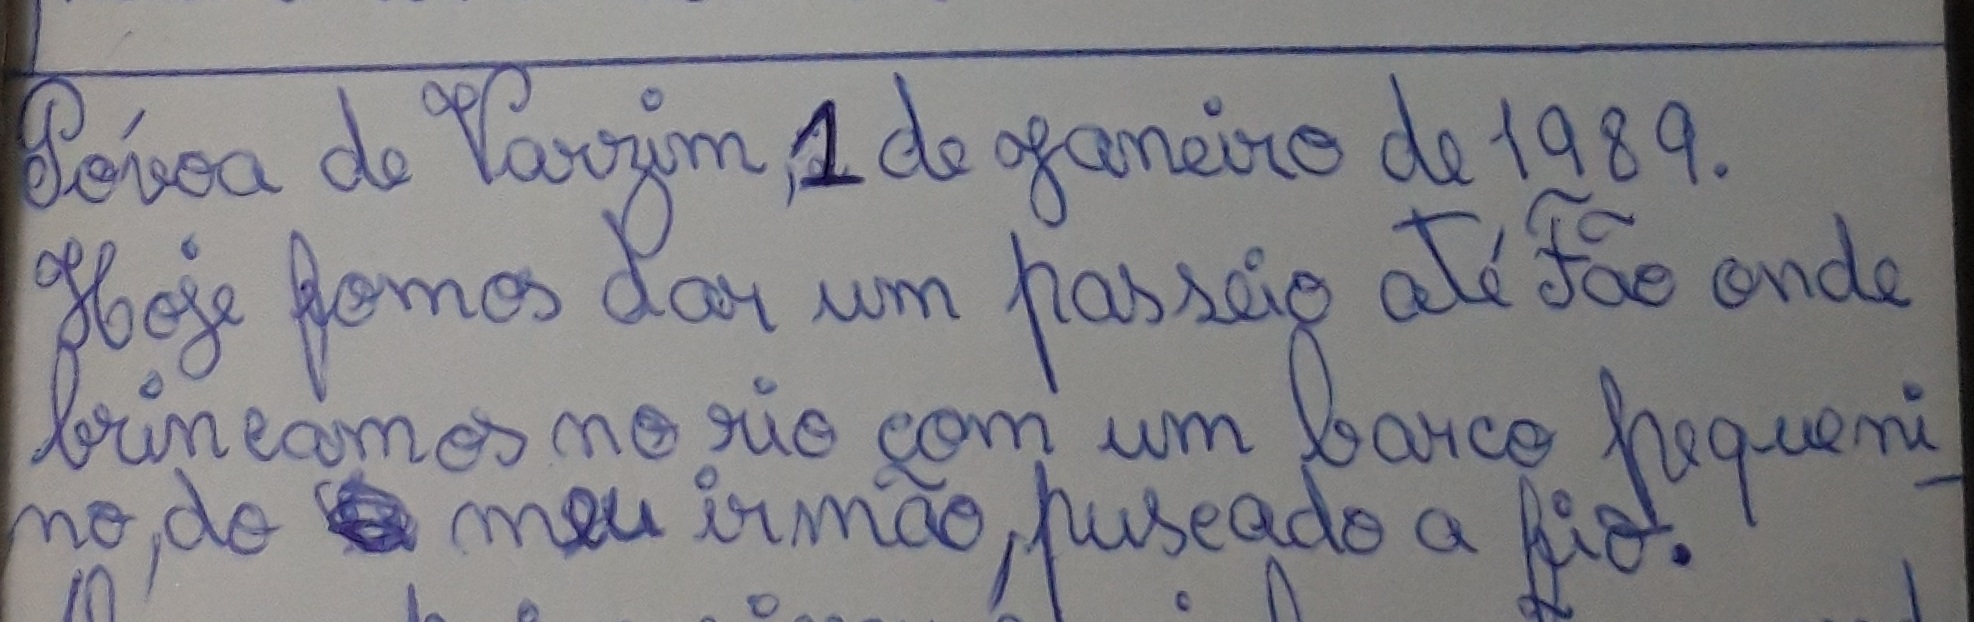 Póvoa de Varzim, 1 de Janeiro de 1989.
Hoje fomos dar um passeio até Fão onde
brincamos no rio com um barco pequeni-
no, do meu irmão, puseado a fio.